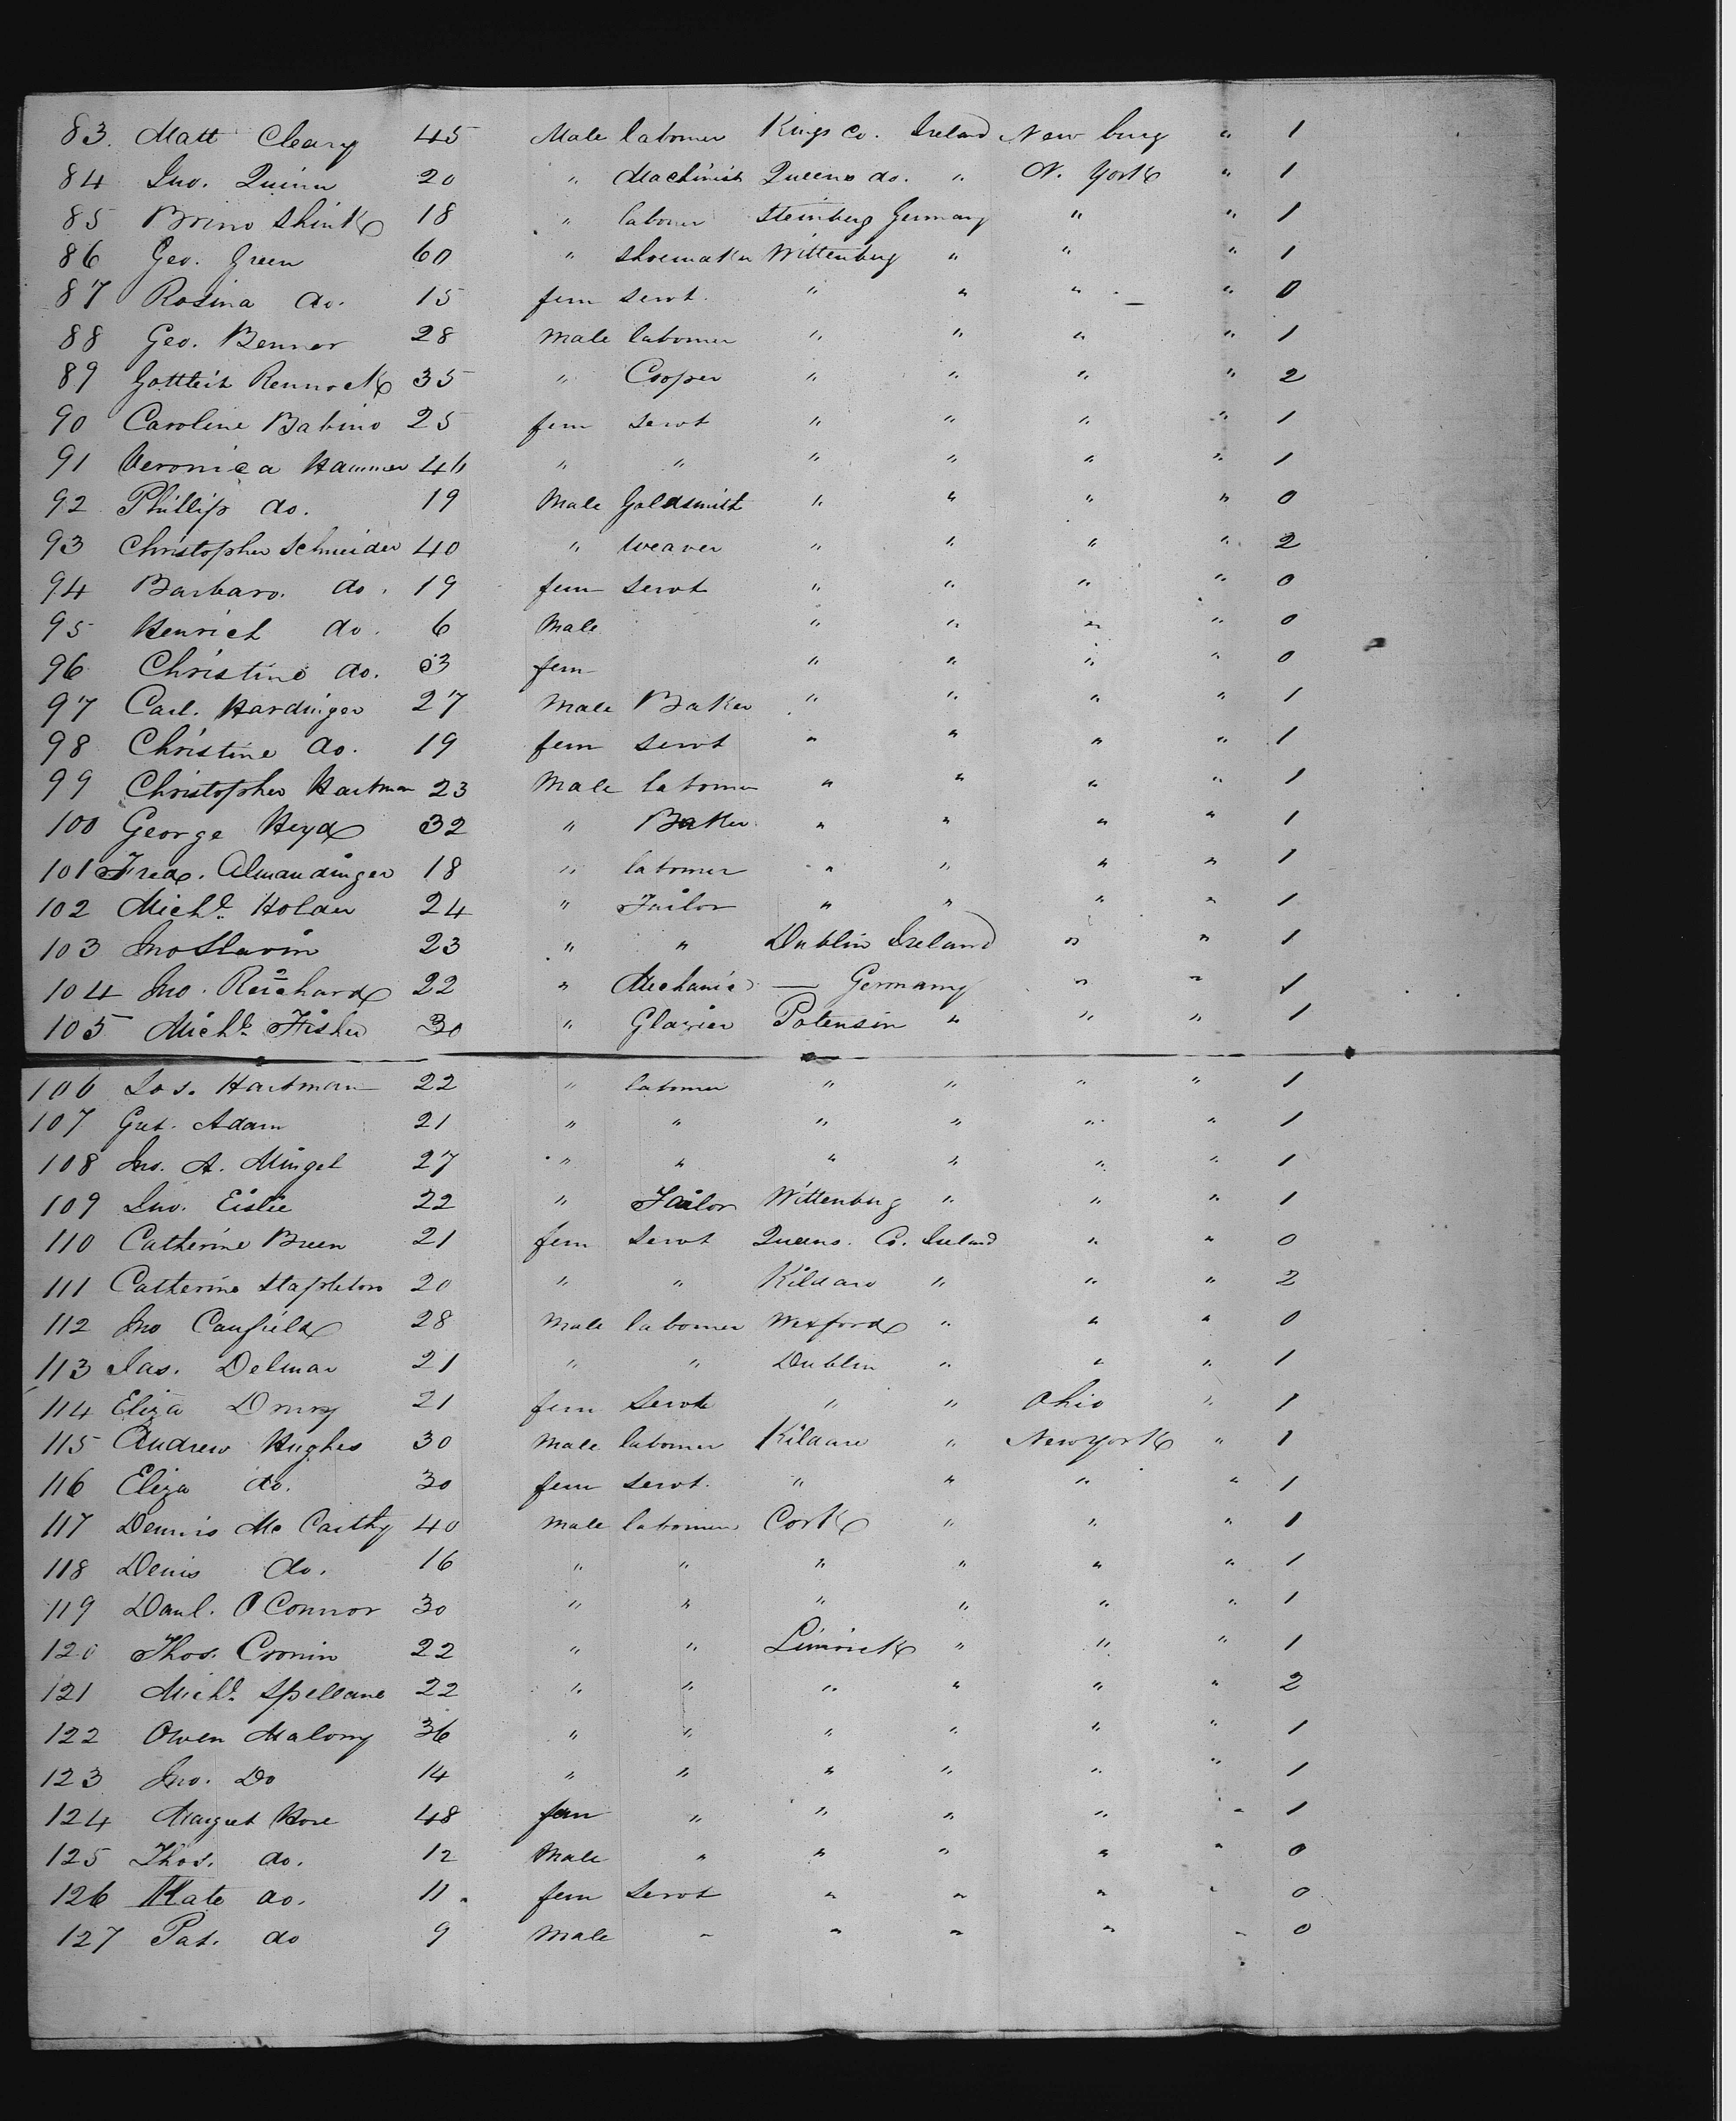 83. Matt Cleary 45 Male labourer Kings Co. Ireland New burg " 1
84 Jno. Quinn 20 " Machinist Queens do. " N. York " 1
85 18 " labourer Steinberg Germany " " 1
86 Geo. Green 60 " Shoemaker Wittenberg " " " 1
87 Rosina do. 15 fem Servt. " " " " 0
88 Geo. Benner 28 Male labourer " " " " 1
89 Gottleib 35 " Cooper " " " " 2
90 Caroline Babino 25 fem Servt " " " " 1
91 Veronica Hammer 46 " " " " " " 1
92 Phillip do. 19 Male Goldsmith " " " " 0
93 Christopher Schneider 40 " Weaver " " " " 2
94 Barbara do. 19 fem Servt " " " " 0
95 Henrich do. 6 Male " " " " 0
96 Christine do. 3 fem " " " " 0
97 Carl. Hardinger 27 Male Baker " " " " 1
98 Christine do. 19 fem Servt " " " " 1
99 Christopher Hartman 23 Male labourer " " " " 1
100 George Heyd 32 " Baker " " " " 1
101 Fred. Almandinger 18 " labourer " " " " 1
102 Michl. Holder 24 " Tailor " " " " 1
103 Jno Slavin 23 " " Dublin Ireland " " 1
104 Jno. Reichard 22 " Mechanic — Germany " " 1
105 Michl. Fisher 30 " Glazier Potensin " " " 1
106 Jos. Hartman 22 " labourer " " " " 1
107 Gut. Adam 21 " " " " " " 1
108 Jno. A. Mingel 27 " " " " " " 1
109 Jno. Eislie 22 " Tailor Wittenberg " " " 1
110 Catherine Breen 21 fem Servt Queens. Co. Ireland " " 0
111 Catherine Stapleton 20 " " Kildare " " " 2
112 Jno Canfield 28 Male labourer Wexford " " " 0
113 Jas. Delmar 21 " " Dublin " " " 1
114 Eliza Drury 21 fem Servt " " Ohio " 1
115 Andrew Hughes 30 Male labourer Kildare " New York " 1
116 Eliza do. 30 fem Servt. " " " " 1
117 Dennis Mc Carthy 40 Male labourer Cork " " " 1
118 Denis do. 16 " " " " " " 1
119 Danl. O Connor 30 " " " " " " 1
120 Thos. Cronin 22 " " Limrick " " " 1
121 Michl. Spellane 22 " " " " " " 2
122 Owen Malony 36 " " " " " " 1
123 Jno. Do 14 " " " " " " 1
124 Margret Hore 48 fem " " " " " 1
125 Thos. do. 12 Male " " " " " 0
126 Kate do. 11. fem Servt " " " " 0
127 Pat. do 9 Male " " " " " 0